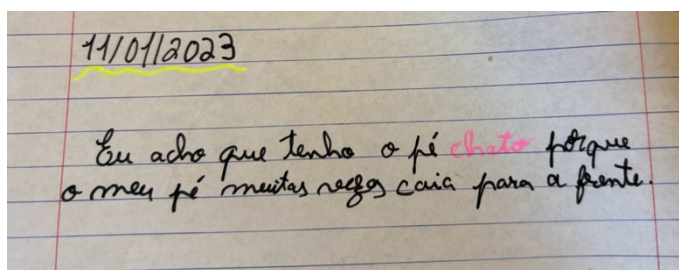 11/01/2023
Eu acho que tenho o pé chato porque
o meu pé muitas vezes caia para a frente.